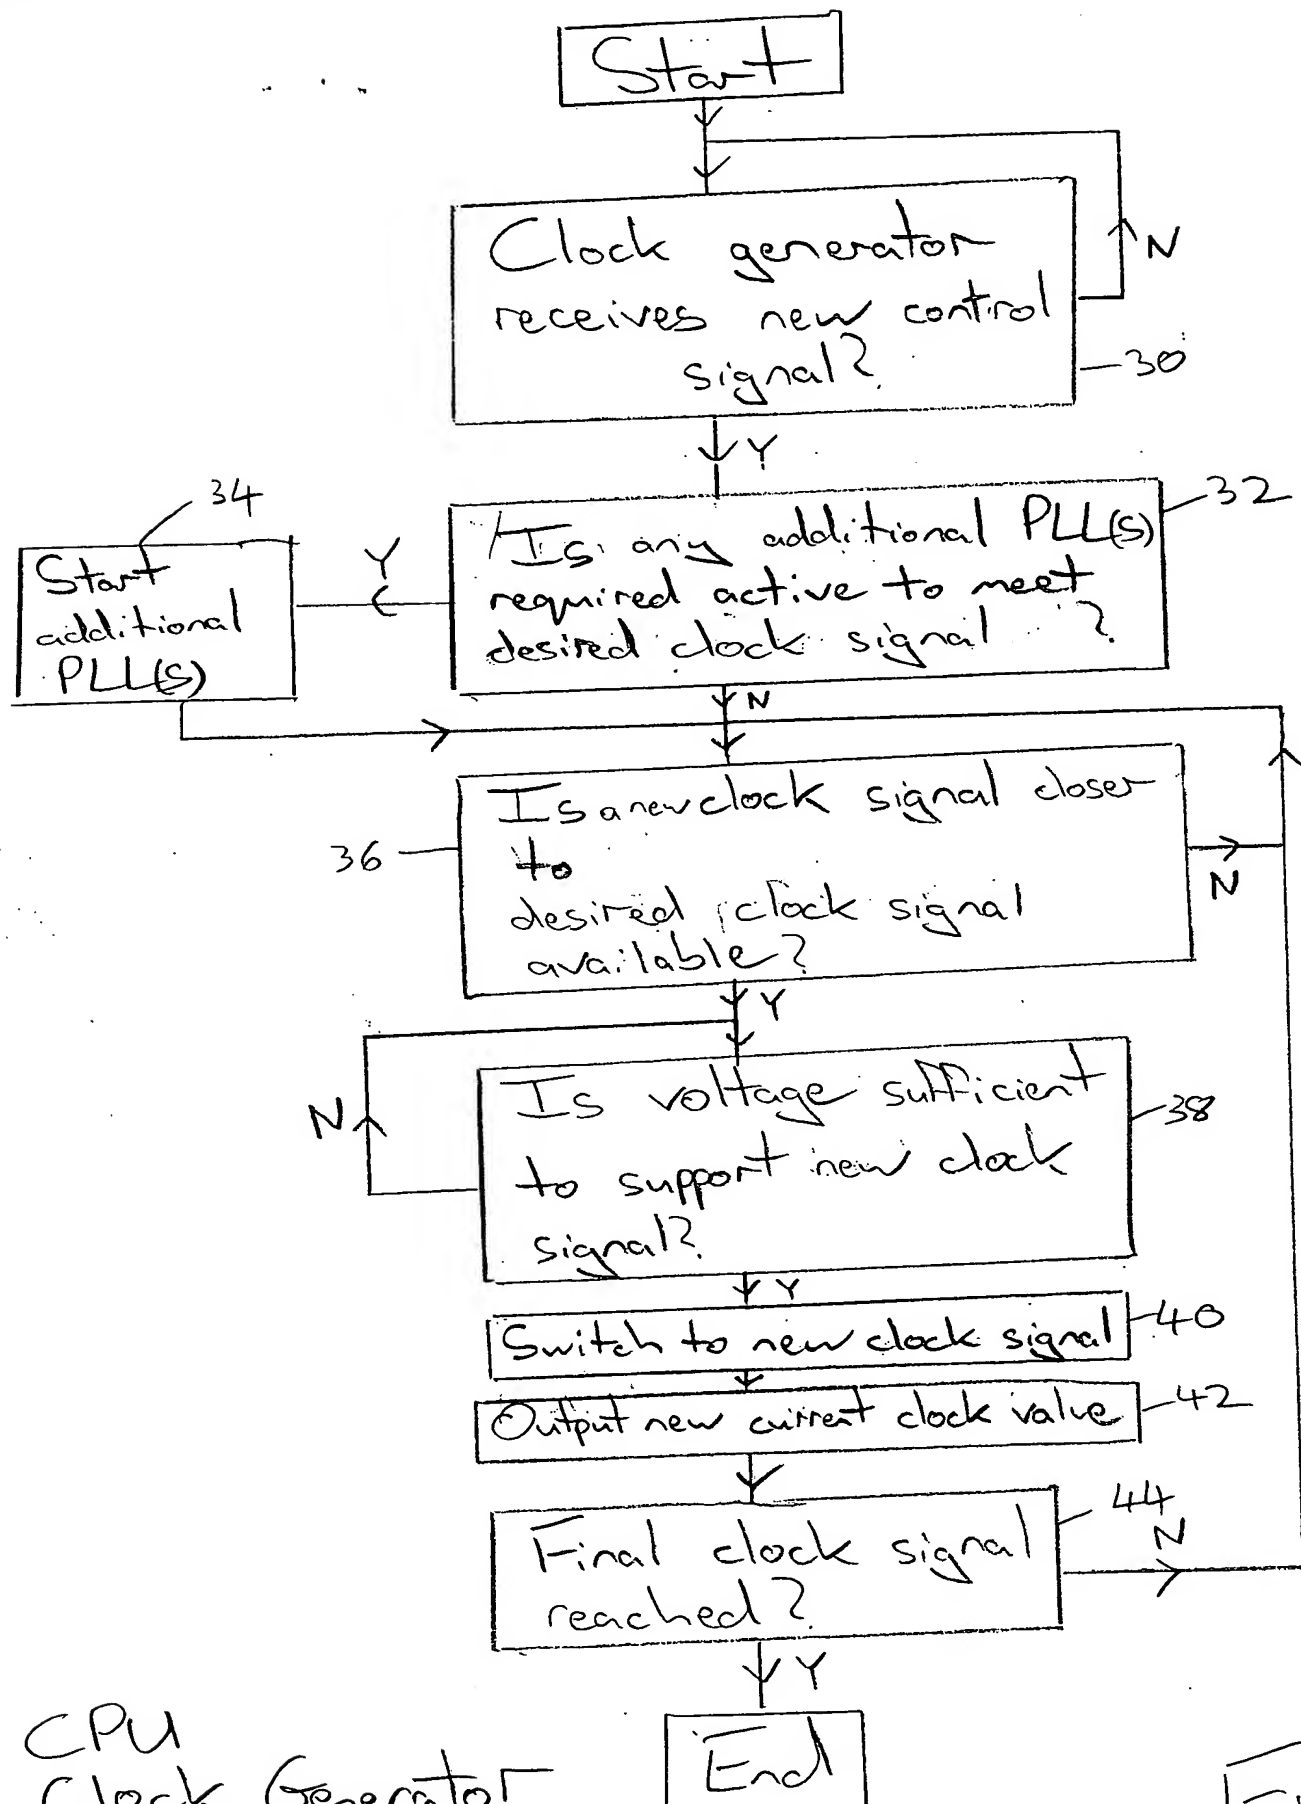 Start
Clock generator
receives new control
signal?
N
30
Y
34
32
Start
additional
PLL(s)
Y
Is any additional PLL(s)
required active to meet
desired clock signal ?
N
36
Is a new clock signal closer
to
desired clock signal
available?
N
Y
N
Is voltage sufficient
to support new clock
signal?
38
Y
Switch to new clock signal
40
Output new current clock value
42
Final clock signal
reached?
44
N
Y
CPU
Clock Generator
End